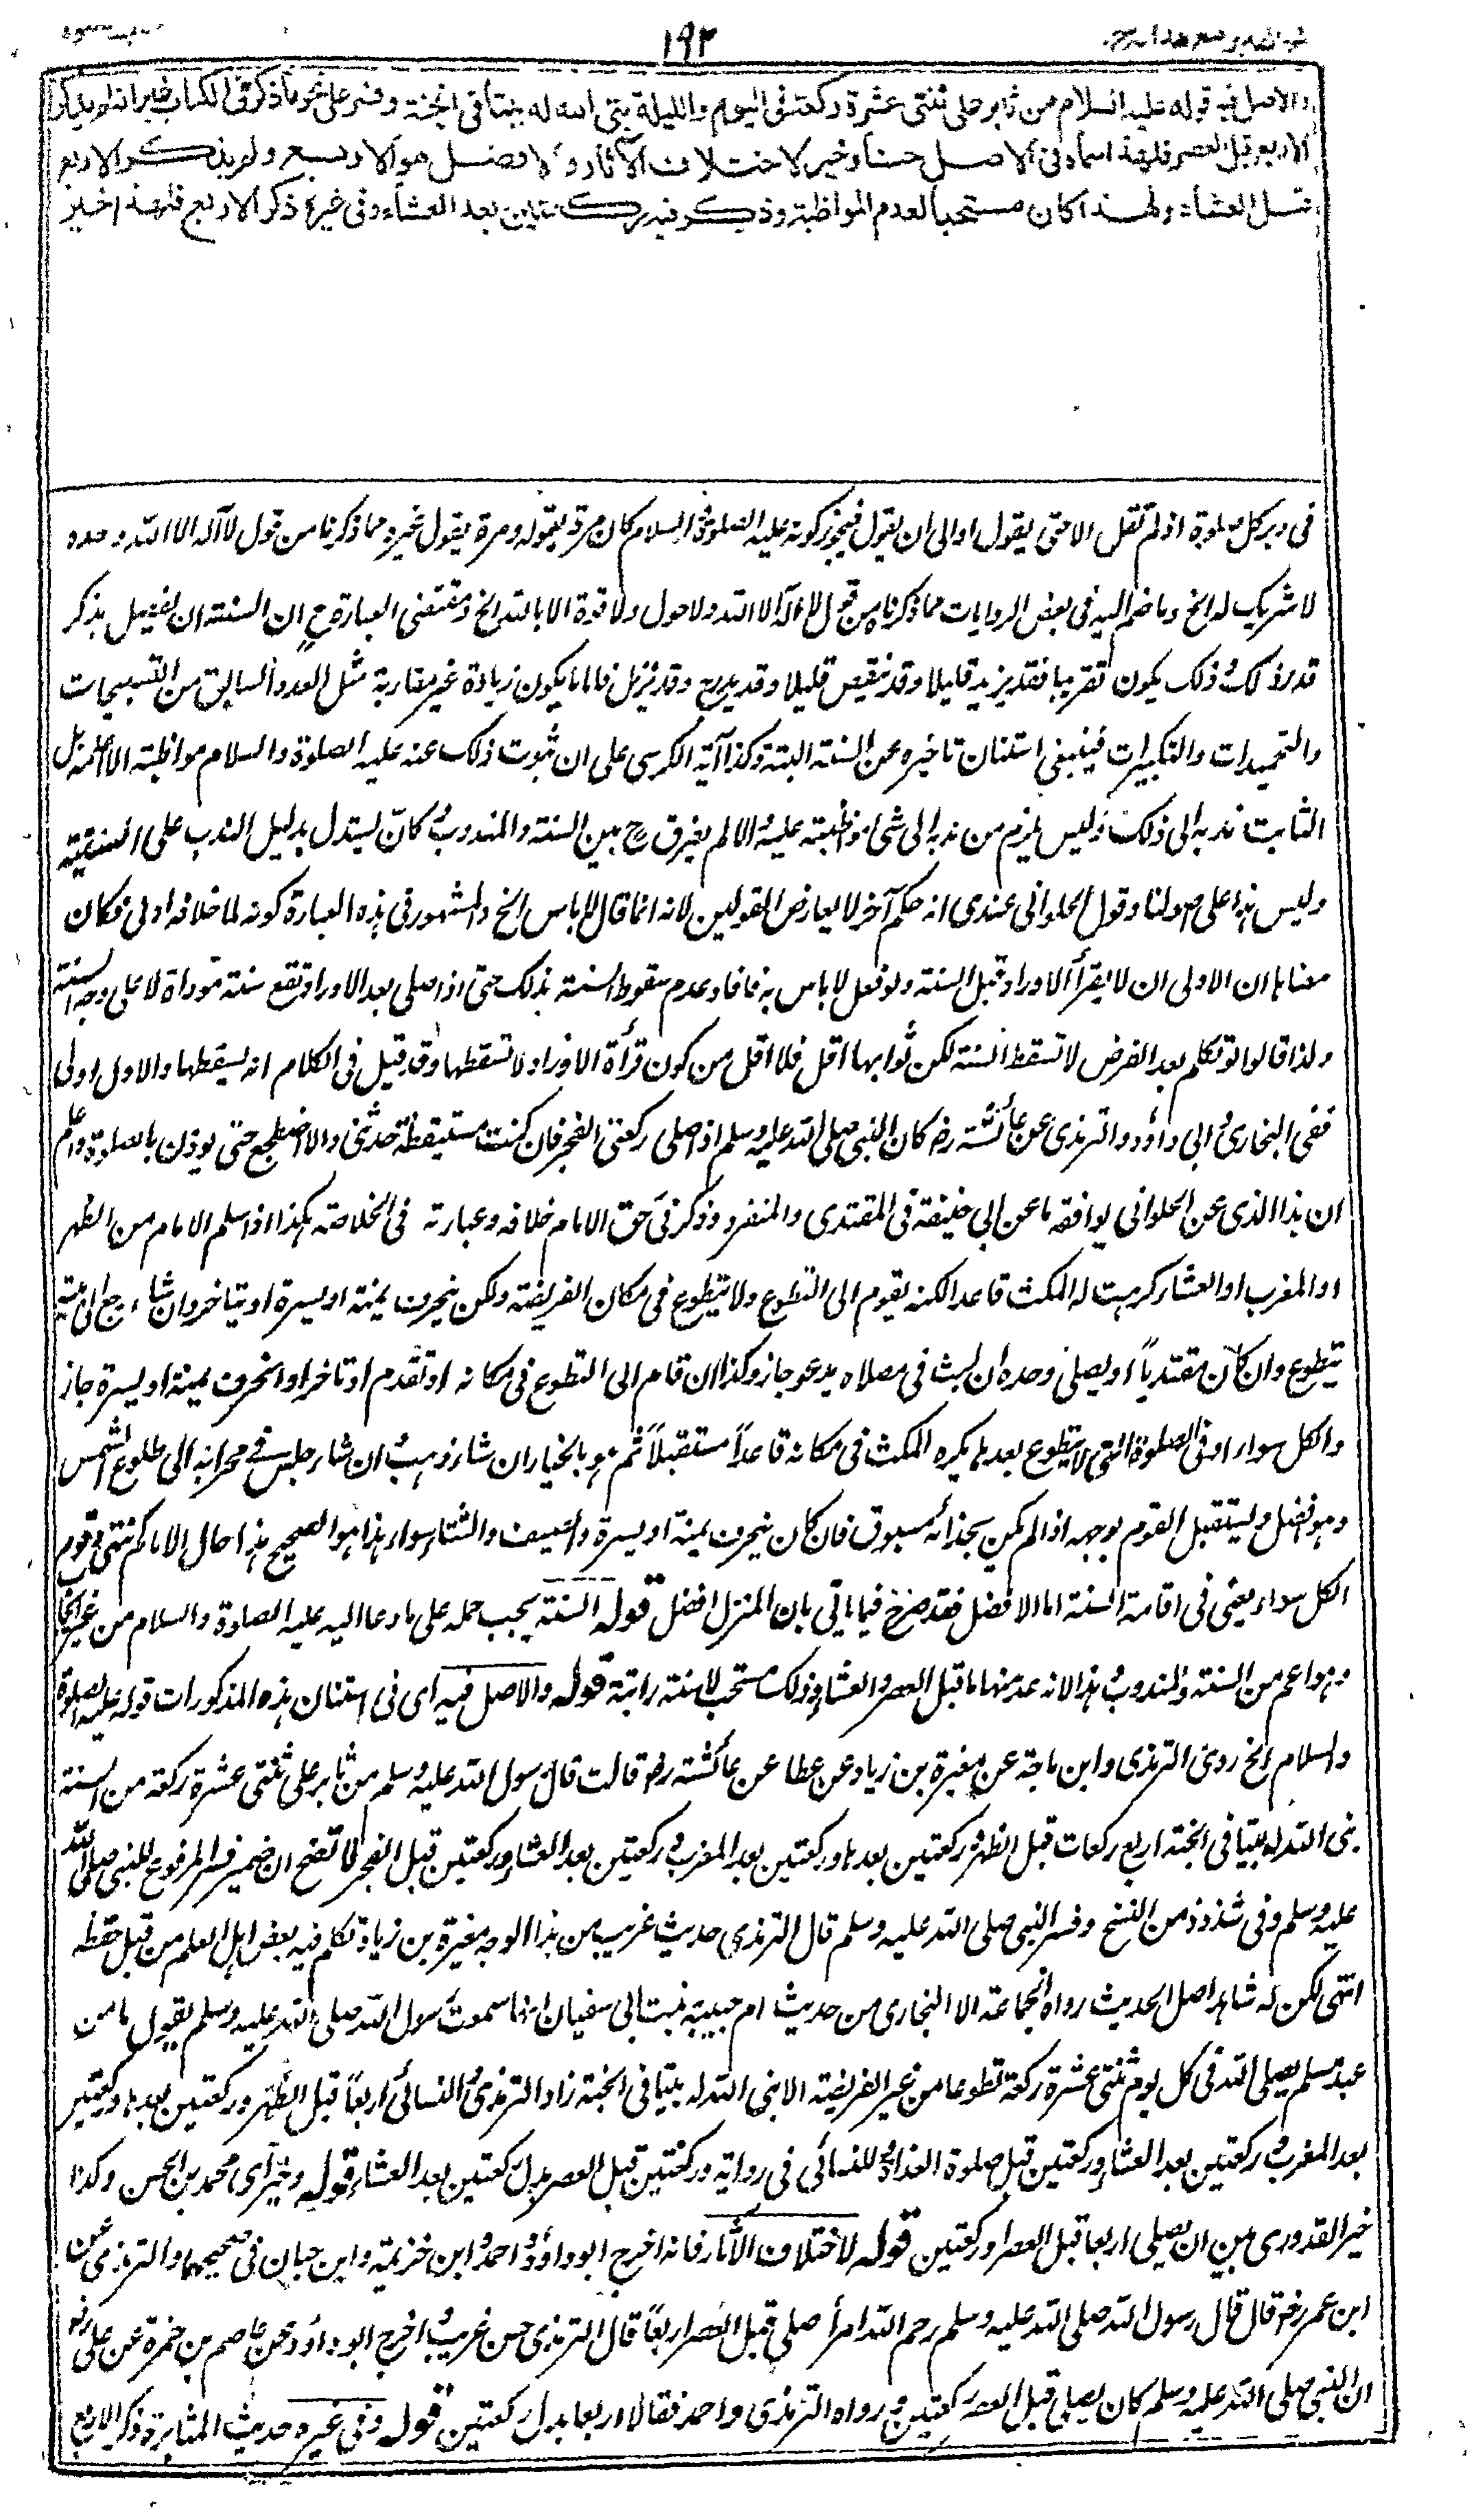 ١٩٢
والاصل فيه قوله عليه السلام من ثابر على ثنتي عشرة ركعة في اليوم والليلة بنى الله له بيتا في الجنة وفسر على نحو ما ذكر في الكتاب غير انه لم يذكر
الاربع قبل العصر فلهذا سماه في الاصل حسنا وخير لاختلاف الآثار والافضل هو الاربع ولم يذكر الاربع
قبل العشاء ولهذا كان مستحبا لعدم المواظبة وذكر فيه ركعتين بعد العشاء وفي غيره ذكر الاربع فلهذا خير
في دبر كل صلوة اذ لم تقل الا حتى يقول او الى ان يقول فيجوز كونه عليه الصلوة والسلام كان مرة يقوله ومرة يقول غيره مما ذكرنا من قول لا اله الا الله وحده
لا شريك له الخ وما ضم اليه في بعض الروايات مما ذكرناه من قول لا اله الا الله ولا حول ولا قوة الا بالله الخ ومقتضى العبارة ح ان السنة ان يفصل بذكر
قدر ذلك وذلك يكون تقريبا فقد يزيد قليلا وقد ينقص قليلا وقد يدرج وقد يرتل فاما ما يكون زيادة غير مقاربة مثل العدد السابق من التسبيحات
والتحميدات والتكبيرات فينبغي استنان تاخيره عن السنة البتة وكذا آية الكرسي على ان ثبوت ذلك عنه عليه الصلوة والسلام مواظبة لا اعلمه بل
الثابت ندبه الى ذلك وليس يلزم من ندبه الى شئ مواظبته عليه والا لم يفرق ح بين السنة والمندوب وكان يستدل بدليل الندب على السنية
وليس هذا على اصولنا وقول الحلواني عندي انه حكم آخر لا يعارض القولين لانه انما قال لا باس الخ والمشهور في هذه العبارة كونه لما خلافه اولى فكان
معناها ان الاولى ان لا يقرأ الاوراد قبل السنة ولو فعل لا باس به فافاد عدم سقوط السنة بذلك حتى اذا صلى بعد الاوراد تقع سنة مؤداة لا على وجه السنة
ولذا قالوا لو تكلم بعد الفرض لا تسقط السنة لكن ثوابها اقل فلا اقل من كون قرأة الاوراد لا تسقطها وقد قيل في الكلام انه يسقطها والاول اولى
ففي البخاري وابي داؤد والترمذي عن عائشة رض كان النبي صلى الله عليه وسلم اذا صلى ركعتي الفجر فان كنت مستيقظة حدثني والا اضطجع حتى يؤذن بالصلوة واعلم
ان هذا الذي عن الحلواني يوافقه ما عن ابي حنيفة في المقتدي والمنفرد وذكر في حق الامام خلافه وعبارته في الخلاصة هكذا اذا سلم الامام من الظهر
او المغرب او العشاء كرهت له المكث قاعدا لكنه يقوم الى التطوع ولا يتطوع في مكان الفريضة ولكن ينحرف يمنة او يسرة او يتاخر وان شاء رجع الى بيته
يتطوع وان كان مقتديا او يصلي وحده ان لبث في مصلاه يدعو جاز وكذا ان قام الى التطوع في مكانه او تقدم او تاخر او انحرف يمنة او يسرة جاز
والكل سواء وفي الصلوة التي لا يتطوع بعدها يكره المكث في مكانه قاعدا مستقبلا ثم هو بالخيار ان شاء ذهب وان شاء جلس في محرابه الى طلوع الشمس
وهو افضل ويستقبل القوم بوجهه اذا لم يكن بحذائه مسبوق فان كان ينحرف يمنة او يسرة والصيف والشتاء سواء هذا هو الصحيح هذا حال الامام انتهى وقوله
الكل سواء يعني في اقامة السنة اما الافضل فقد صرح فيما ياتي بان المنزل افضل قوله السنة يجب حمله على ما دعا اليه عليه الصلوة والسلام من غير ايجاب
وهو اعم من السنة والمندوب هذا لانه عد منها ما قبل العصر والعشاء وذلك مستحب لا سنة راتبة قوله والاصل فيه اي في استنان هذه المذكورات قوله عليه الصلوة
والسلام الخ روى الترمذي وابن ماجة عن مغيرة بن زياد عن عطاء عن عائشة رض قالت قال رسول الله عليه وسلم من ثابر على ثنتي عشرة ركعة من السنة
بنى الله له بيتا في الجنة اربع ركعات قبل الظهر وركعتين بعدها وركعتين بعد المغرب وركعتين بعد العشاء وركعتين قبل الفجر لا تضح ان ضمير فسر المرفوع للنبي صلى الله
عليه وسلم وفي شذوذ من النسخ وفسر النبي صلى الله عليه وسلم قال الترمذي حديث غريب من هذا الوجه مغيرة بن زياد تكلم فيه بعض اهل العلم من قبل حفظه
انتهى لكن له شاهد اصل الحديث رواه الجماعة الا البخاري من حديث ام حبيبة بنت ابي سفيان انها سمعت رسول الله صلى الله عليه وسلم يقول ما من
عبد مسلم يصلي لله في كل يوم ثنتي عشرة ركعة تطوعا من غير الفريضة الا بنى الله له بيتا في الجنة زاد الترمذي والنسائي اربعا قبل الظهر وركعتين بعدها وركعتين
بعد المغرب وركعتين بعد العشاء وركعتين قبل صلوة الغداة وللنسائي في رواية وركعتين قبل العصر بدل ركعتين بعد العشاء قوله وخير اي محمد بن الحسن وكذا
خير القدوري بين ان يصلي اربعا قبل العصر او ركعتين قوله لاختلاف الآثار فانه اخرج ابو داؤد واحمد وابن خزيمة وابن حبان في صحيحيهما والترمذي عن
ابن عمر رض قال قال رسول الله صلى الله عليه وسلم رحم الله امرأ صلى قبل العصر اربعا قال الترمذي حسن غريب واخرج ابو داؤد عن عاصم بن ضمرة عن علي رض
ان النبي صلى الله عليه وسلم كان يصلي قبل العصر ركعتين ورواه الترمذي واحمد فقالا اربعا بدل ركعتين قوله وفي غيره حديث المثابرة ذكر الاربع